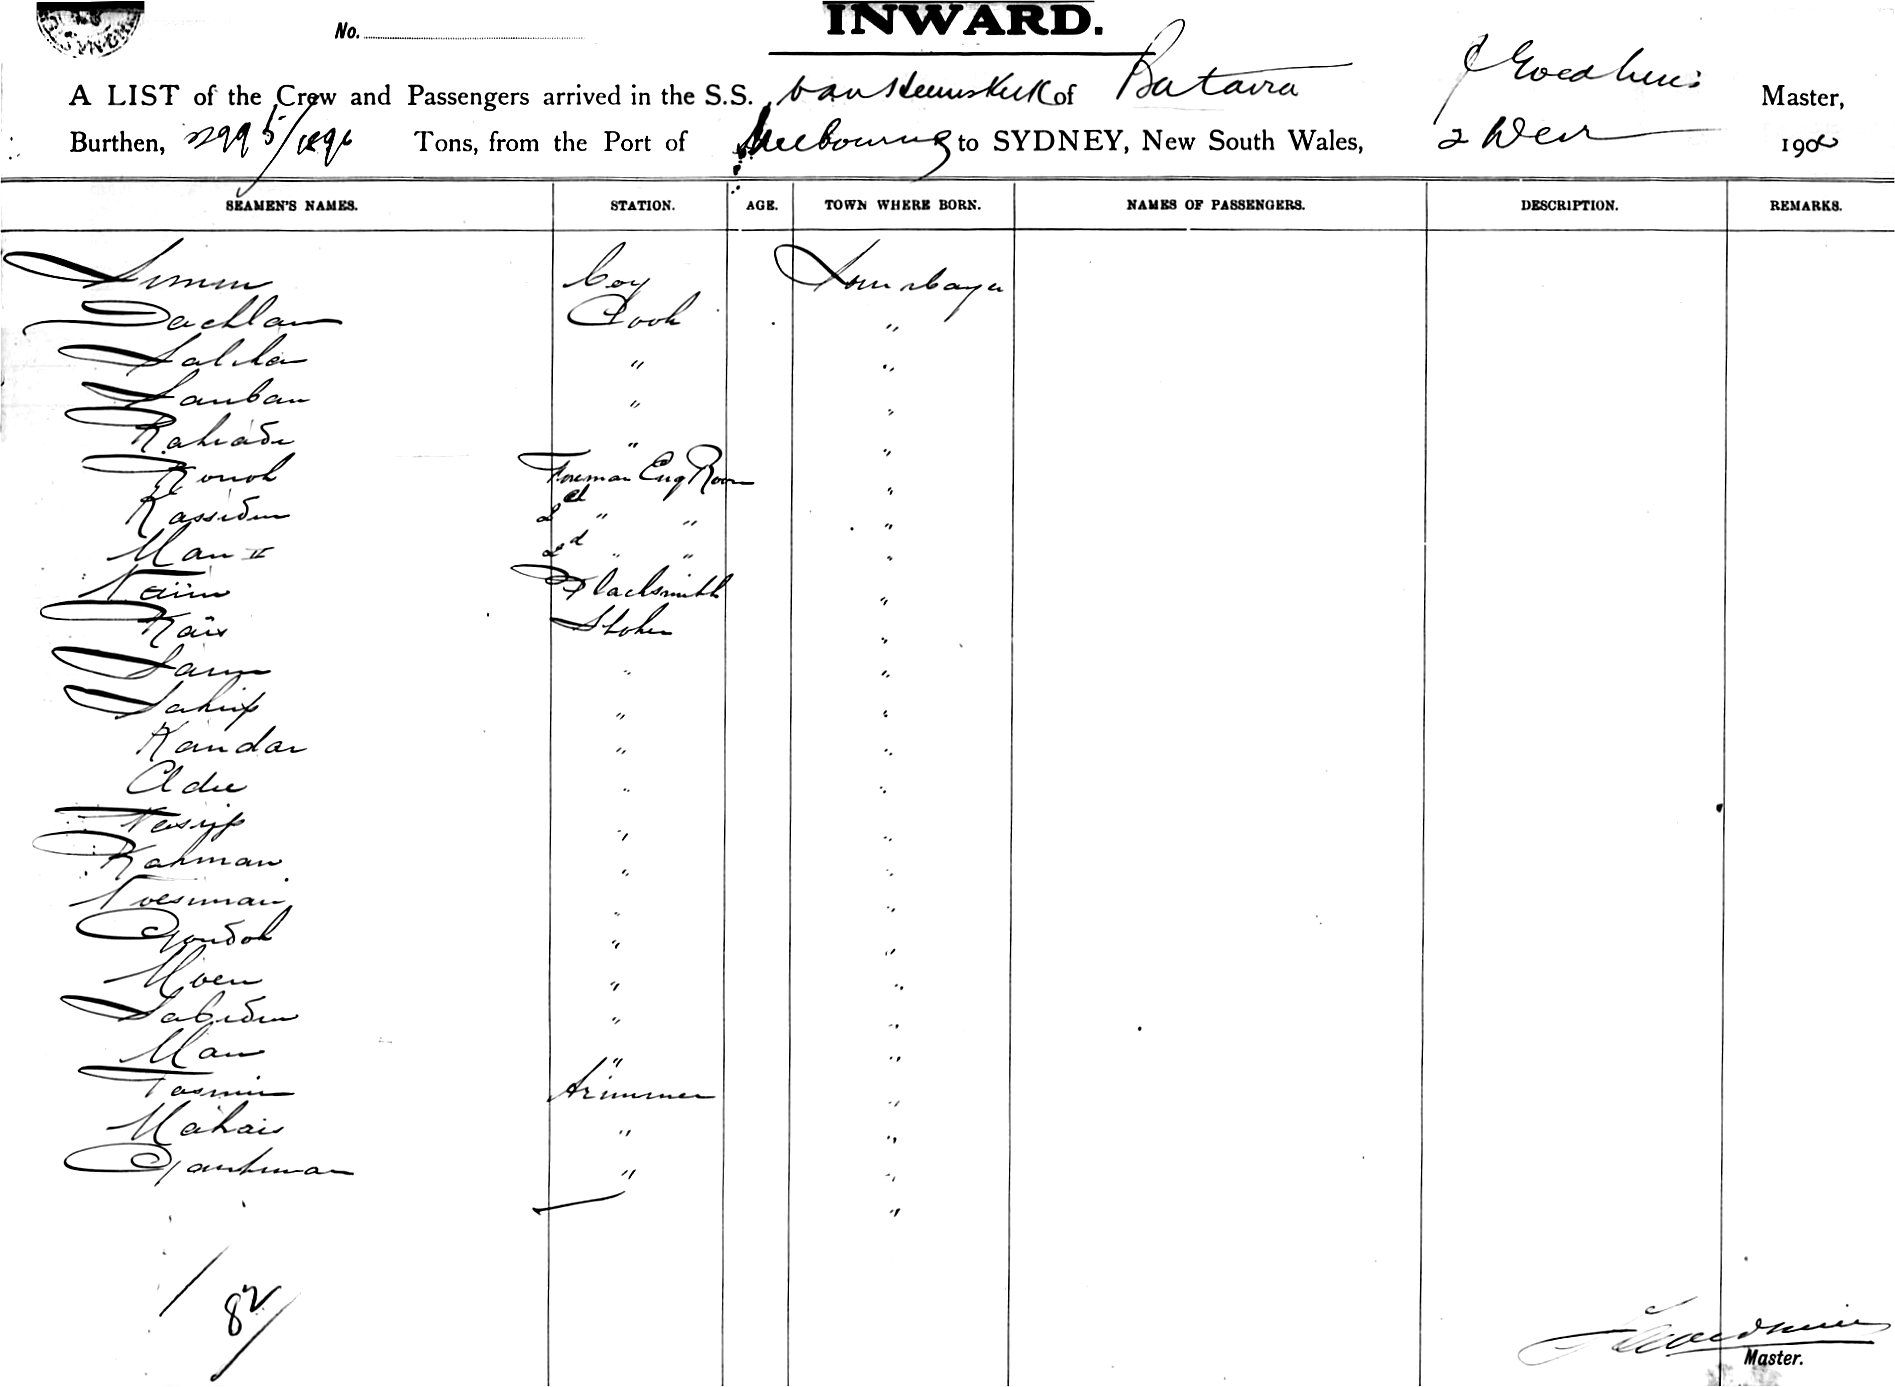 No.
INWARD.
A LIST of the Crew and Passengers arrived in the S.S. van Heemskerk of Batavia J Goedhuis Master,
Burthen, 2995/1896 Tons, from the Port of Melbourne to SYDNEY, New South Wales, 2 Decr 190
SEAMEN'S NAMES. STATION. AGE. TOWN WHERE BORN. NAMES OF PASSENGERS. DESCRIPTION. REMARKS.
Simin Boy Sourabaya
Dachlan Cook "
" "
Sauban " "
" "
Konoh Foreman Eng Room "
Kassidin 2d " " "
Man II 2d " " "
Naiim Blacksmith "
Kais Stoker "
Sarin " "
Sahip " "
Kandar " "
Adie " "
Tasrip " "
Rahman " "
Noesman " "
Gondoh " "
Moen " "
Sabidin " "
Man " "
Tasmin Trimmer "
Mahais " "
" "
"
82
Goedhuis
Master.